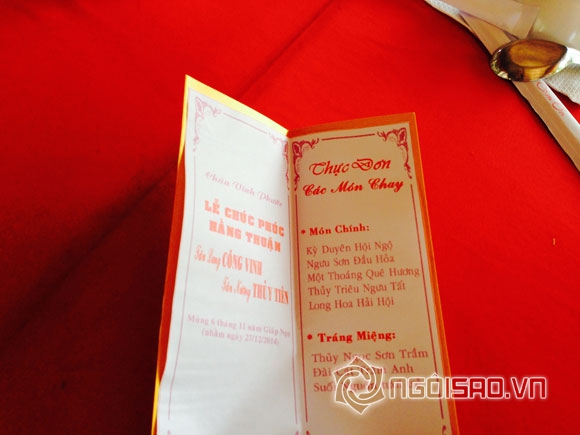 Chùa Vĩnh Phước
LỄ CHÚC PHÚC
HẰNG THUẬN
Tân Lang CÔNG VINH
Tân Nương THỦY TIÊN
Mùng 6 tháng 11 năm Giáp Ngọ
(nhằm ngày 27/12/2014)
Thực Đơn
Các Món Chay
• Món Chính:
Kỳ Duyên Hội Ngộ
Ngưu Sơn Đầu Hỏa
Một Thoáng Quê Hương
Thủy Triêu Ngưu Tất
Long Hoa Hải Hội
• Tráng Miệng:
Thủy Ngọc Sơn Trầm
Đài Anh
Suối
NGÔISAO.VN